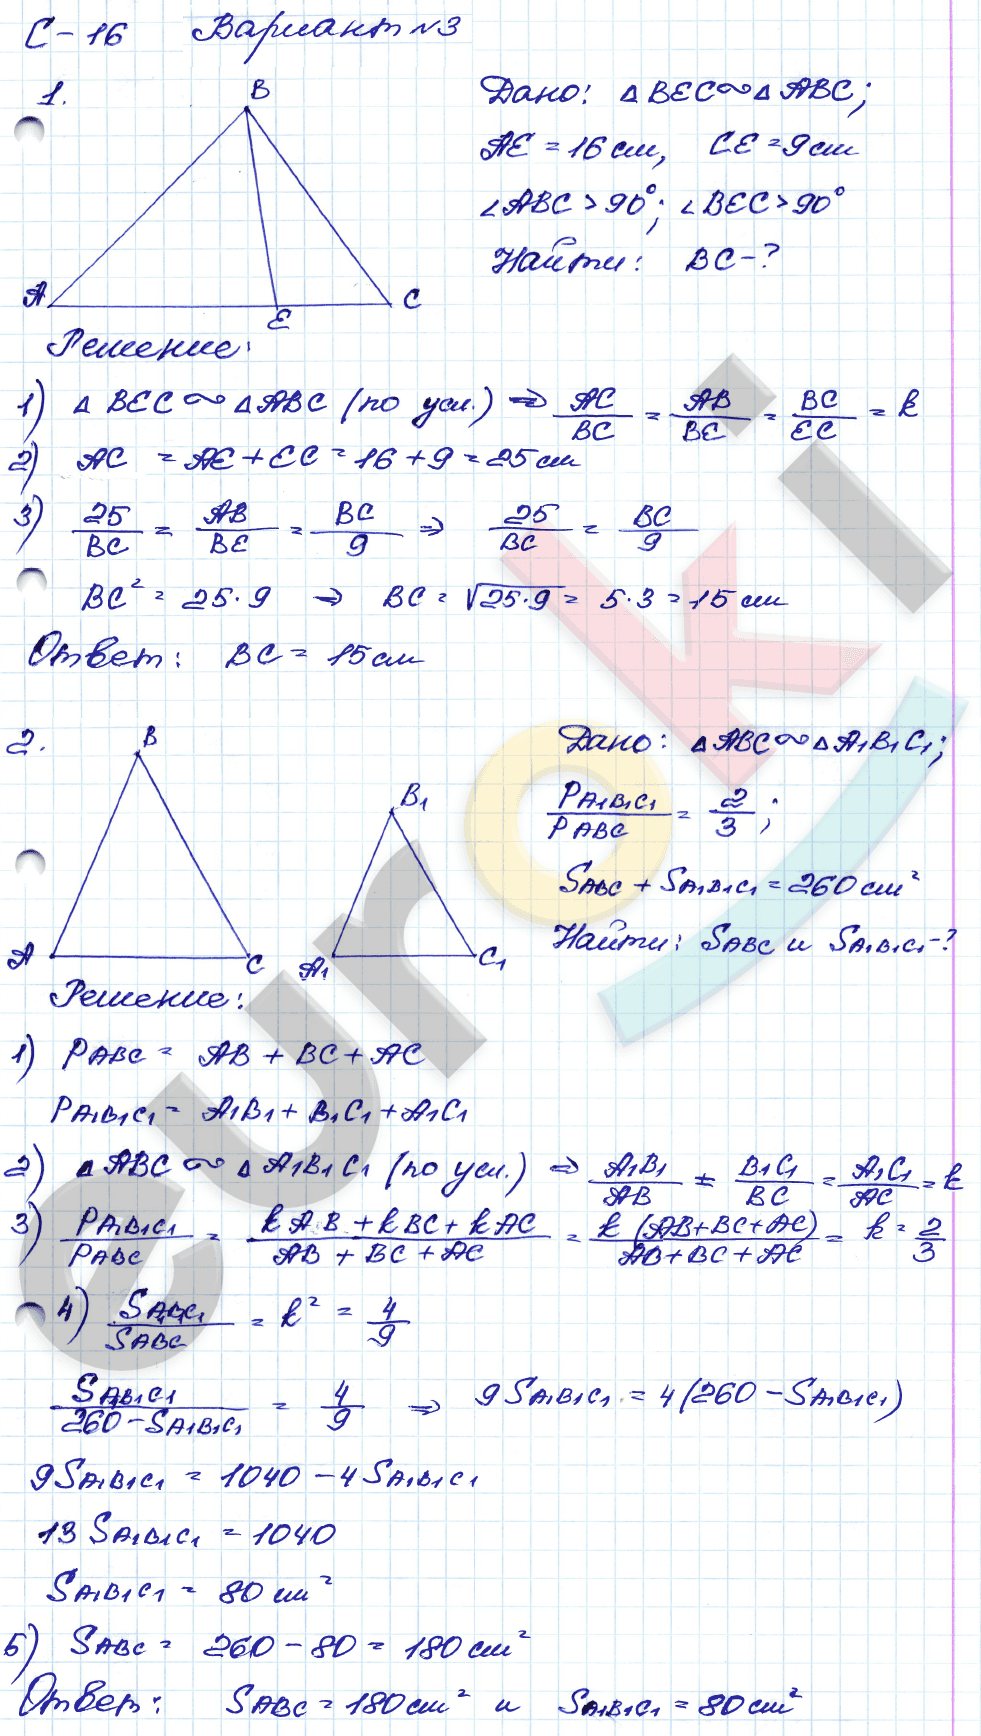 С-16 Вариант №3
1.
B
A
E
C
Дано: △BEC∾△ABC;
AE = 16 см, CE = 9 см
∠ABC > 90°; ∠BEC > 90°
Найти: BC - ?
Решение:
1) △BEC ∾ △ABC (по усл.) ⇒ AC/BC = AB/BE = BC/EC = k
2) AC = AE + EC = 16 + 9 = 25 см
3) 25/BC = AB/BE = BC/9 ⇒ 25/BC = BC/9
BC² = 25·9 ⇒ BC = √25·9 = 5·3 = 15 см
Ответ: BC = 15 см
2.
B
A
C
B₁
A₁
C₁
Дано: △ABC∾△A₁B₁C₁;
P A₁B₁C₁/P ABC = 2/3;
S ABC + S A₁B₁C₁ = 260 см²
Найти: S ABC и S A₁B₁C₁ - ?
Решение:
1) P ABC = AB + BC + AC
P A₁B₁C₁ = A₁B₁ + B₁C₁ + A₁C₁
2) △ABC ∾ △A₁B₁C₁ (по усл.) ⇒ A₁B₁/AB = B₁C₁/BC = A₁C₁/AC = k
3) P A₁B₁C₁/P ABC = kAB + kBC + kAC/AB + BC + AC = k(AB+BC+AC)/AB+BC+AC = k = 2/3
4) S A₁B₁C₁/S ABC = k² = 4/9
S A₁B₁C₁/260 - S A₁B₁C₁ = 4/9 ⇒ 9S A₁B₁C₁ = 4(260 - S A₁B₁C₁)
9S A₁B₁C₁ = 1040 - 4S A₁B₁C₁
13 S A₁B₁C₁ = 1040
S A₁B₁C₁ = 80 см²
5) S ABC = 260 - 80 = 180 см²
Ответ: S ABC = 180 см² и S A₁B₁C₁ = 80 см²
euroki